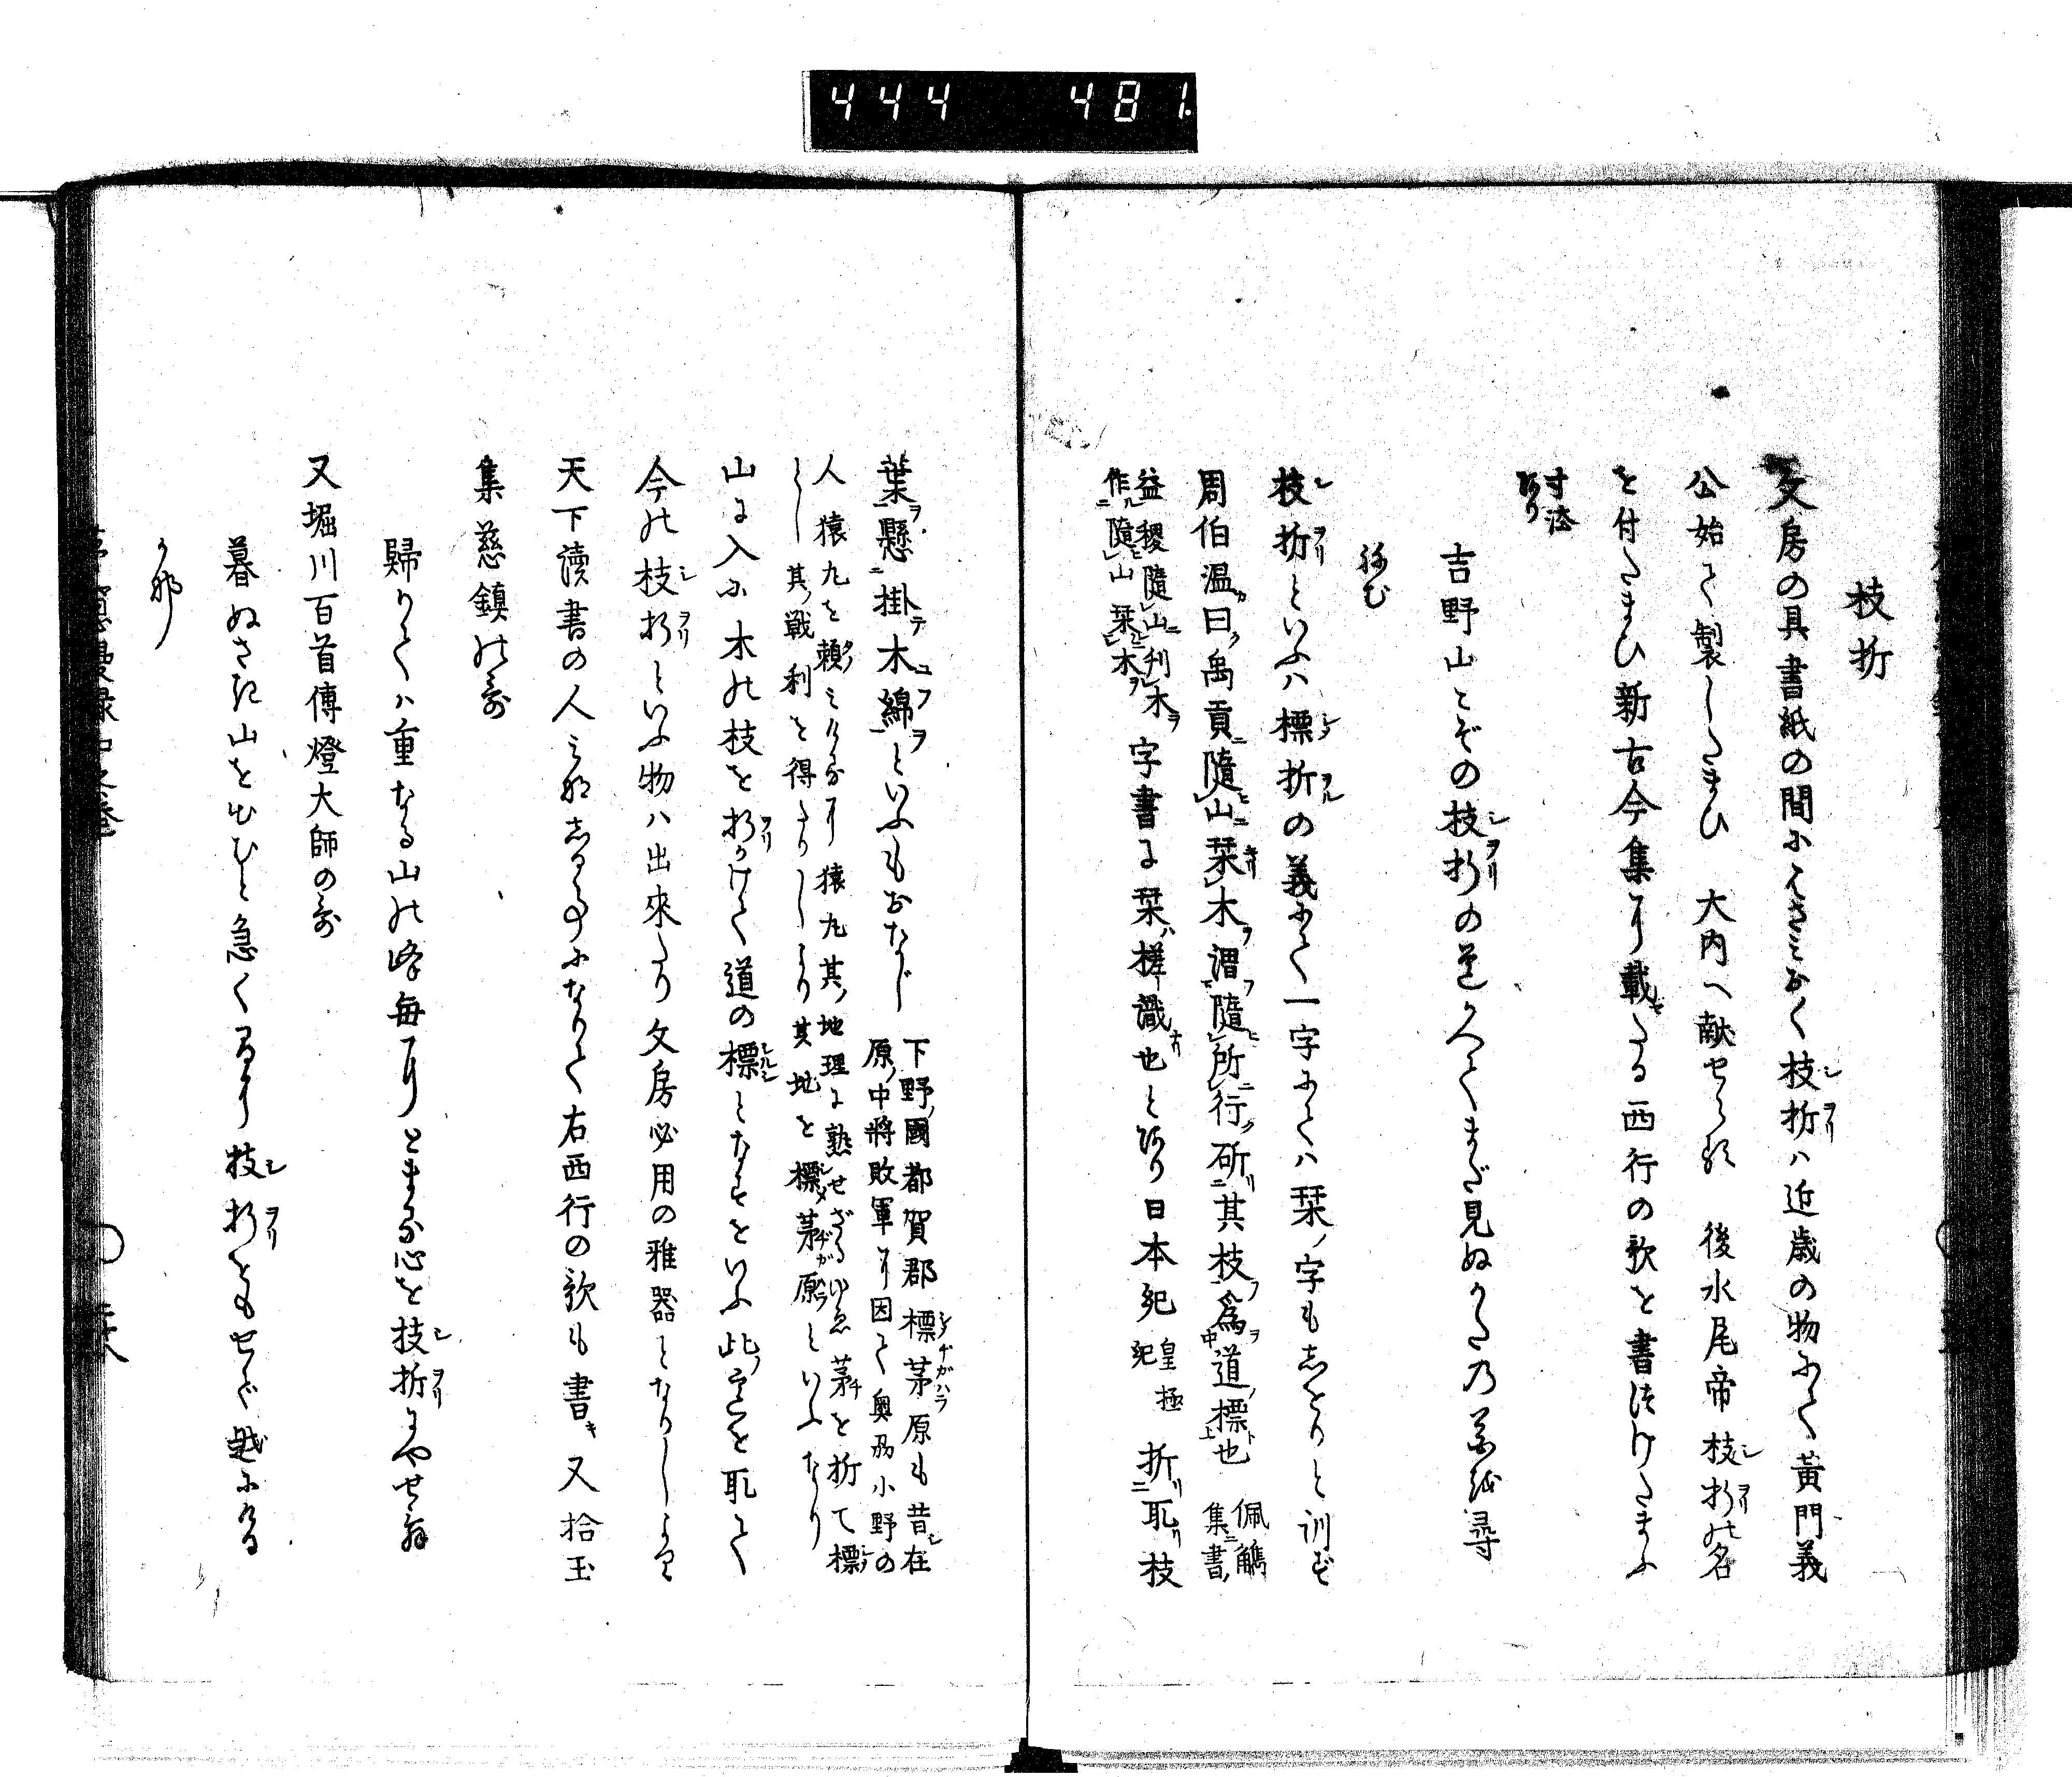 444 481.
枝折
文房の具書紙の間にはさみおく枝折ハ近歳の物にて黄門義
公始て製したまひ 大内へ献せられ 後水尾帝枝折の名
を付たまひ新古今集に載たる西行の歌を書付けたまふ
寸法
あり
吉野山こぞの枝折の道かへてまだ見ぬかたの花を尋
ねむ
枝折といふハ標折の義にて一字にてハ栞ノ字もしをりと訓ず
周伯温曰禹貢隨山栞木謂隨所行斫其枝為道標也 佩觿
集書
益稷隨山刋木
作隨山栞木 字書に栞ハ槎識也とあり日本紀 皇極
紀 折取枝
葉懸掛木綿といふもおなじ 下野國都賀郡標茅原も昔在
原ノ中將敗軍に因て奥州小野の
人猿丸を頼みけるに猿丸其地理に熟せざるゆゑ茅を折て標
とし其戦利を得たりしより其地を標茅原といふなり
山に入に木の枝を折かけて道の標となすをいふ此意を取て
今の枝折といふ物ハ出來たり文房必用の雅器となりしより
天下讀書の人みなしる事になりて右西行の歌も書キ又拾玉
集慈鎮の哥
歸りてハ重なる山の峰毎にとまる心を枝折にやせむ
又堀川百首傳燈大師の哥
暮ぬさきに山を出むと急くまに枝折をもせで越にける
かな